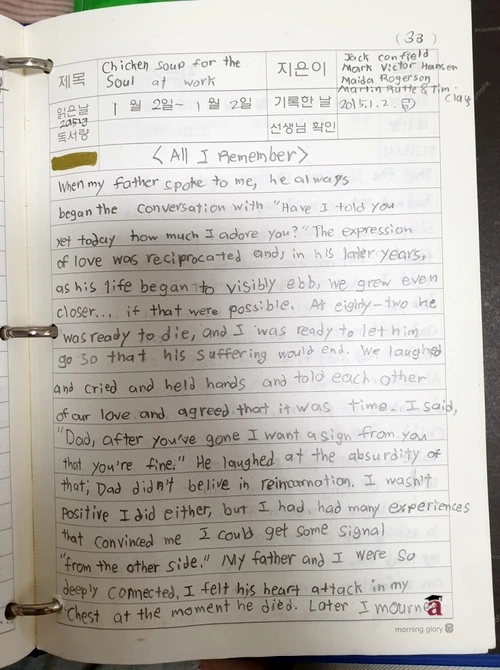 (33)
제목
Chicken soup for the
Soul at work
지은이
Jack confield
Mark Victor Hansen
Maida Rogerson
Martin Rutte & Tim
Clay
읽은날
1월 2일~ 1월 2일
기록한 날
2015.1.2.
2015년
독서량
선생님 확인
<All I Remember>
When my father spoke to me, he always
began the conversation with "Have I told you
yet today how much I adore you?" The expression
of love was reciprocated and, in his later years,
as his life began to visibly ebb, we grew even
closer... if that were possible. At eighty-two he
was ready to die, and I was ready to let him
go so that his suffering would end. We laughed
and cried and held hands and told each other
of our love and agreed that it was time. I said,
"Dad, after you've gone I want a sign from you
that you're fine." He laughed at the absurdity of
that; Dad didn't belive in reincarnation. I wasn't
positive I did either, but I had, had many experiences
that convinced me I could get some signal
"from the other side." My father and I were so
deeply connected, I felt his heart attack in my
Chest at the moment he died. Later I mourne
a
morning glory